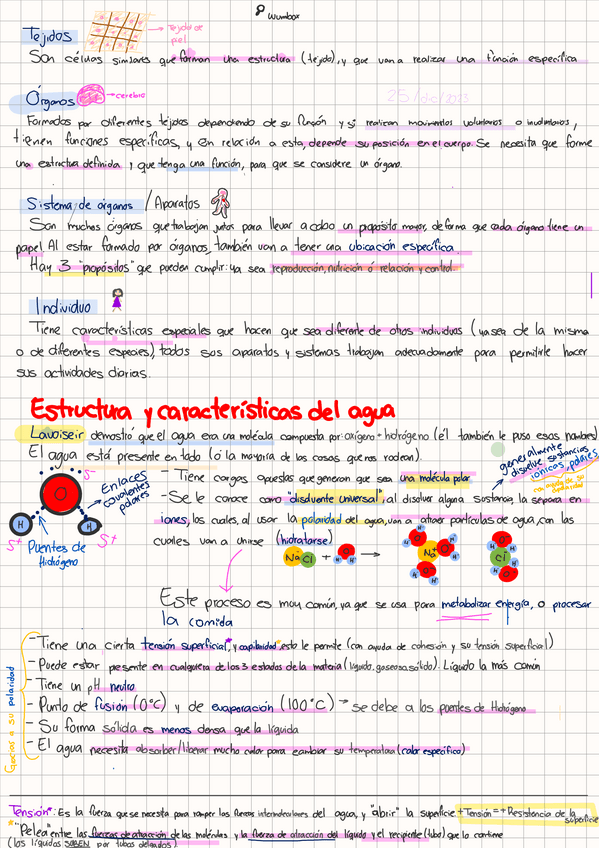 Wumbox
Tejidos
→ Tejido de
piel
Son células similares que forman una estructura (tejido), y que van a realizar una función específica
Órganos
→ cerebro
25/dic/2023
Formados por diferentes tejidos dependiendo de su función y si realizan movimientos voluntarios o involuntarios,
tienen funciones específicas, y en relación a esta, depende su posición en el cuerpo. Se necesita que forme
una estructura definida y que tenga una función, para que se considere un órgano.
Sistema de órganos / Aparatos
Son muchos órganos que trabajan juntos para llevar a cabo un propósito mayor, de forma que cada órgano tiene un
papel. Al estar formado por órganos, también van a tener una ubicación específica.
Hay 3 "propósitos" que pueden cumplir: ya sea reproducción, nutrición ó relación y control.
Individuo
Tiene características especiales que hacen que sea diferente de otros individuos (ya sea de la misma
o de diferentes especies), todos sus aparatos y sistemas trabajan adecuadamente para permitirle hacer
sus actividades diarias.
Estructura y características del agua
Lavoiseir demostró que el agua era una molécula compuesta por: oxígeno + hidrógeno (él también le puso esos nombres)
El agua está presente en todo (o la mayoría de las cosas que nos rodean).
generalmente
disuelve sustancias
iónicas, polares
- Tiene cargas opuestas que generan que sea una molécula polar
- Se le conoce como "disolvente universal", al disolver alguna sustancia, la separa en
iones, los cuales, al usar la polaridad del agua, van a atraer partículas de agua, con las
cuales van a unirse (hidratarse)
S-
O
H
H
S+
S+
Enlaces
covalentes
polares
Puentes de
Hidrógeno
Na Cl + O H H → Na+ Cl-
Este proceso es muy común, ya que se usa para metabolizar energía, o procesar
la comida
Gracias a su polaridad
- Tiene una cierta tensión superficial* y capilaridad*, esto le permite (con ayuda de cohesión y su tensión superficial)
- Puede estar presente en cualquiera de los 3 estados de la materia (líquido, gaseoso, sólido). Líquido la más común
- Tiene un pH neutro
- Punto de fusión (0°C) y de evaporación (100°C) → se debe a los puentes de Hidrógeno
- Su forma sólida es menos densa que la líquida
- El agua necesita absorber/liberar mucho calor para cambiar su temperatura (calor específico)
Tensión*: Es la fuerza que se necesita para romper las fuerzas intermoleculares del agua, y "abrir" la superficie +Tensión = + Resistencia de la
superficie
*"Pelea" entre las fuerzas de atracción de las moléculas y la fuerza de atracción del líquido y el recipiente (tubo) que lo contiene
(los líquidos SUBEN por tubos delgados)